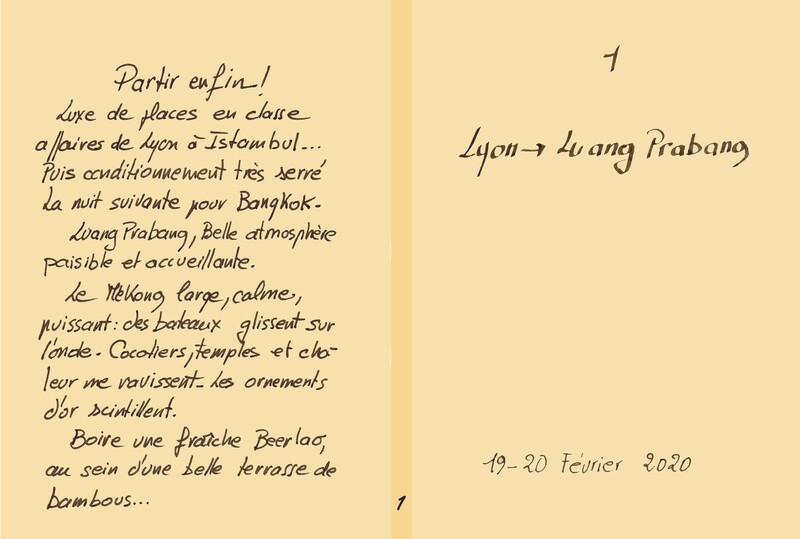 Partir enfin!
Luxe de places en classe
affaires de Lyon à Istambul...
Puis conditionnement très serré
La nuit suivante pour Bangkok.
Luang Prabang, Belle atmosphère
paisible et accueillante.
Le Mékong large, calme,
puissant: des bateaux glissent sur
l'onde. Cocotiers, temples et cha-
leur me ravissent. Les ornements
d'or scintillent.
Boire une fraîche Beerlao,
au sein d'une belle terrasse de
bambous...
1
1
Lyon → Luang Prabang
19-20 Février 2020